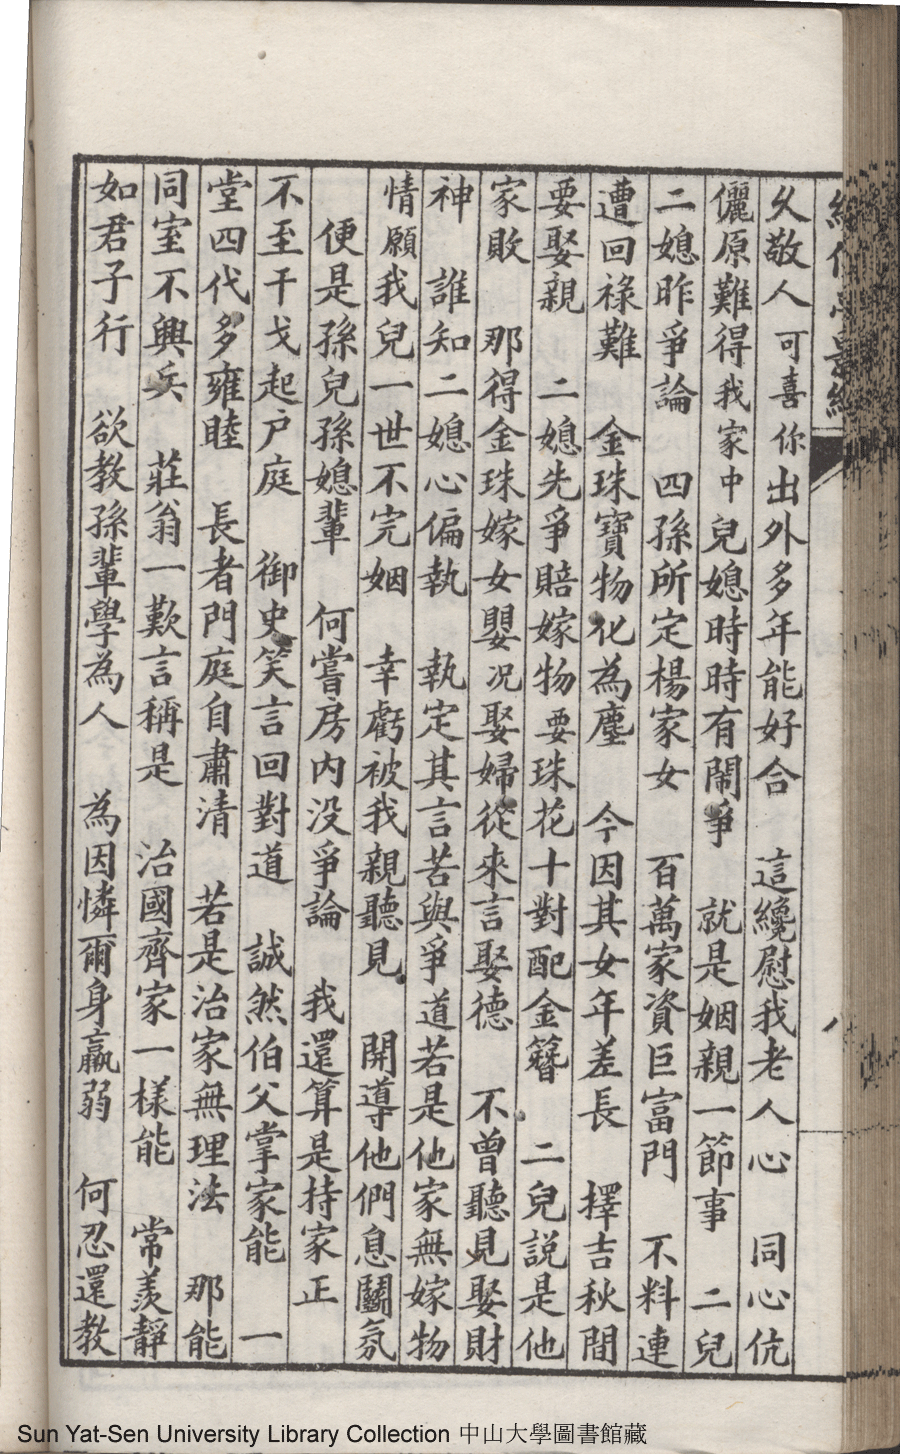 久敬人 可喜你出外多年能好合 這纔慰我老人心 同心伉
儷原難得我家中兒媳時時有鬧爭 就是姻親一節事 二兒
二媳昨爭論 四孫所定楊家女 百萬家資巨富門 不料連
遭回祿難 金珠寶物化為塵 今因其女年差長 擇吉秋間
要娶親 二媳先爭賠嫁物要珠花十對配金簪 二兒說是他
家敗 那得金珠嫁女嬰況娶婦從來言娶德 不曾聽見娶財
神 誰知二媳心偏執 執定其言苦與爭道若是他家無嫁物
情願我兒一世不完姻 幸虧被我親聽見 開導他們息鬬氛
便是孫兒孫媳輩 何嘗房內沒爭論 我還算是持家正
不至干戈起户庭 御史笑言回對道 誠然伯父掌家能 一
堂四代多雍睦 長者門庭自肅清 若是治家無理法 那能
同室不興兵 莊翁一歎言稱是 治國齊家一樣能 常羨靜
如君子行 欲教孫輩學為人 為因憐爾身羸弱 何忍還教
Sun Yat-Sen University Library Collection 中山大學圖書館藏